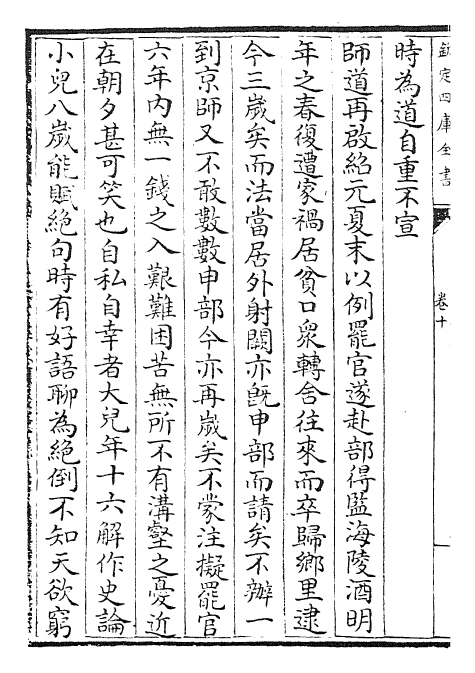 欽定四庫全書
卷十
時為道自重不宣
師道再啟紹元夏末以例罷官遂赴部得監海陵酒明
年之春復遭家禍居貧口衆轉舍往來而卒歸鄉里逮
今三歲矣而法當居外射闕亦既申部而請矣不辦一
到京師又不敢數數申部今亦再歲矣不蒙注擬罷官
六年內無一錢之入艱難困苦無所不有溝壑之憂近
在朝夕甚可笑也自私自幸者大兒年十六解作史論
小兒八歲能賦絶句時有好語聊為絶倒不知天欲窮